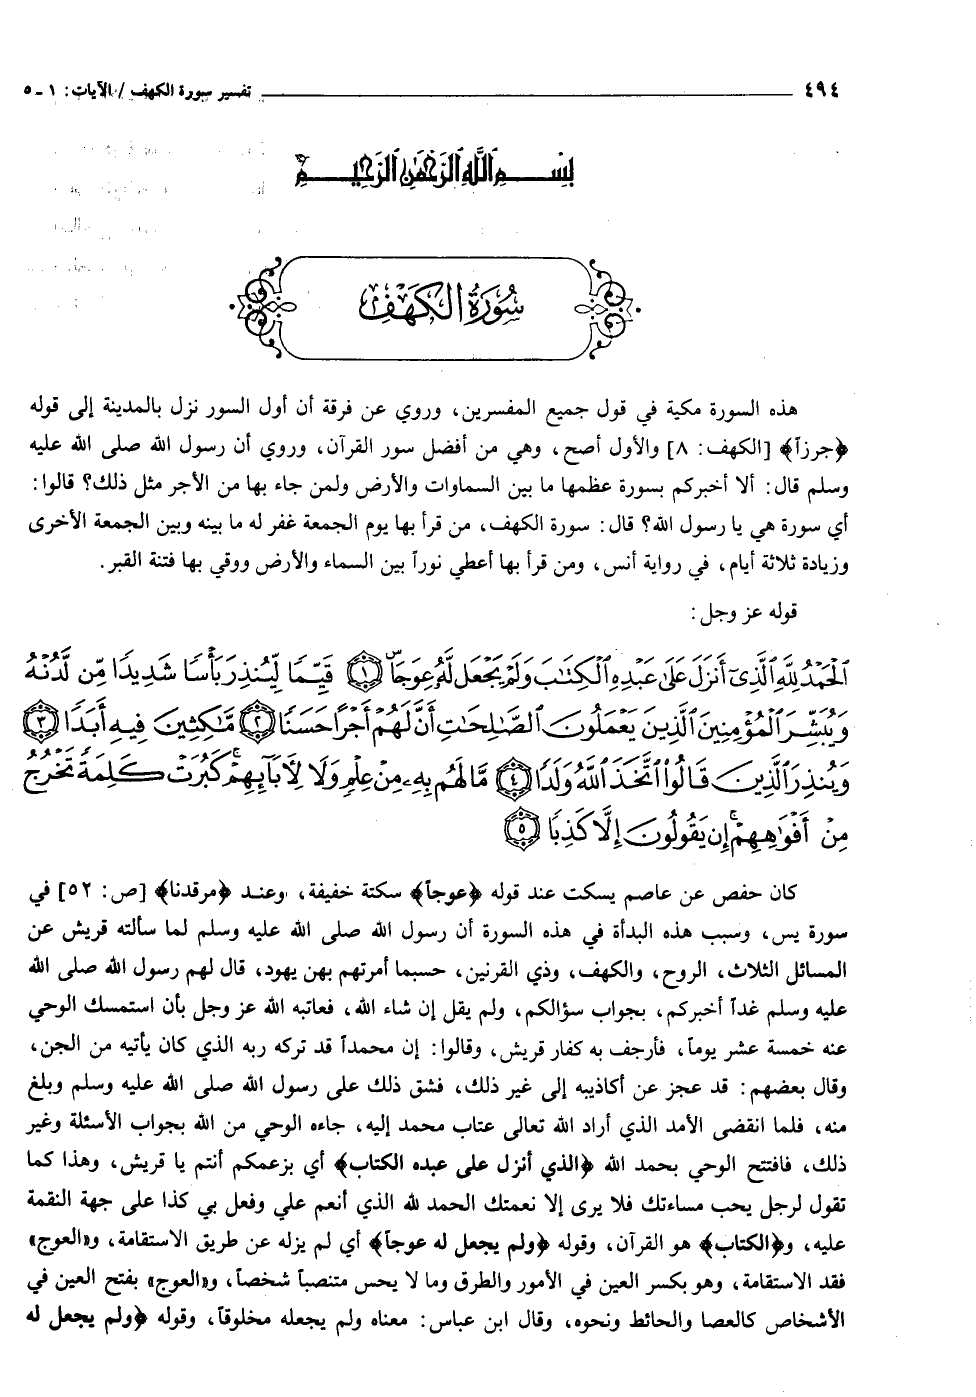 ٤٩٤ تفسير سورة الكهف / الآيات: ١ - ٥
بسم الله الرحمن الرحيم
سورة الكهف
هذه السورة مكية في قول جميع المفسرين، وروي عن فرقة أن أول السور نزل بالمدينة إلى قوله
﴿جرزاً﴾ [الكهف: ٨] والأول أصح، وهي من أفضل سور القرآن، وروي أن رسول الله صلى الله عليه
وسلم قال: ألا أخبركم بسورة عظمها ما بين السماوات والأرض ولمن جاء بها من الأجر مثل ذلك؟ قالوا:
أي سورة هي يا رسول الله؟ قال: سورة الكهف، من قرأ بها يوم الجمعة غفر له ما بينه وبين الجمعة الأخرى
وزيادة ثلاثة أيام، في رواية أنس، ومن قرأ بها أعطي نوراً بين السماء والأرض ووقي بها فتنة القبر.
قوله عز وجل:
ٱلْحَمْدُ لِلَّهِ ٱلَّذِىٓ أَنزَلَ عَلَىٰ عَبْدِهِ ٱلْكِتَٰبَ وَلَمْ يَجْعَل لَّهُۥ عِوَجَاۜ ﴿١﴾ قَيِّمًا لِّيُنذِرَ بَأْسًا شَدِيدًا مِّن لَّدُنْهُ
وَيُبَشِّرَ ٱلْمُؤْمِنِينَ ٱلَّذِينَ يَعْمَلُونَ ٱلصَّٰلِحَٰتِ أَنَّ لَهُمْ أَجْرًا حَسَنًا ﴿٢﴾ مَّٰكِثِينَ فِيهِ أَبَدًا ﴿٣﴾
وَيُنذِرَ ٱلَّذِينَ قَالُوا۟ ٱتَّخَذَ ٱللَّهُ وَلَدًا ﴿٤﴾ مَّا لَهُم بِهِۦ مِنْ عِلْمٍ وَلَا لِءَابَآئِهِمْ ۚ كَبُرَتْ كَلِمَةً تَخْرُجُ
مِنْ أَفْوَٰهِهِمْ ۚ إِن يَقُولُونَ إِلَّا كَذِبًا ﴿٥﴾
كان حفص عن عاصم يسكت عند قوله ﴿عوجاً﴾ سكتة خفيفة، وعند ﴿مرقدنا﴾ [ص: ٥٢] في
سورة يس، وسبب هذه البدأة في هذه السورة أن رسول الله صلى الله عليه وسلم لما سألته قريش عن
المسائل الثلاث، الروح، والكهف، وذي القرنين، حسبما أمرتهم بهن يهود، قال لهم رسول الله صلى الله
عليه وسلم غداً أخبركم، بجواب سؤالكم، ولم يقل إن شاء الله، فعاتبه الله عز وجل بأن استمسك الوحي
عنه خمسة عشر يوماً، فأرجف به كفار قريش، وقالوا: إن محمداً قد تركه ربه الذي كان يأتيه من الجن،
وقال بعضهم: قد عجز عن أكاذيبه إلى غير ذلك، فشق ذلك على رسول الله صلى الله عليه وسلم وبلغ
منه، فلما انقضى الأمد الذي أراد الله تعالى عتاب محمد إليه، جاءه الوحي من الله بجواب الأسئلة وغير
ذلك، فافتتح الوحي بحمد الله ﴿الذي أنزل على عبده الكتاب﴾ أي بزعمكم أنتم يا قريش، وهذا كما
تقول لرجل يحب مساءتك فلا يرى إلا نعمتك الحمد لله الذي أنعم علي وفعل بي كذا على جهة النقمة
عليه، و﴿الكتاب﴾ هو القرآن، وقوله ﴿ولم يجعل له عوجاً﴾ أي لم يزله عن طريق الاستقامة، و«العوج»
فقد الاستقامة، وهو بكسر العين في الأمور والطرق وما لا يحس متنصباً شخصاً، و«العوج» بفتح العين في
الأشخاص كالعصا والحائط ونحوه، وقال ابن عباس: معناه ولم يجعله مخلوقاً، وقوله ﴿ولم يجعل له